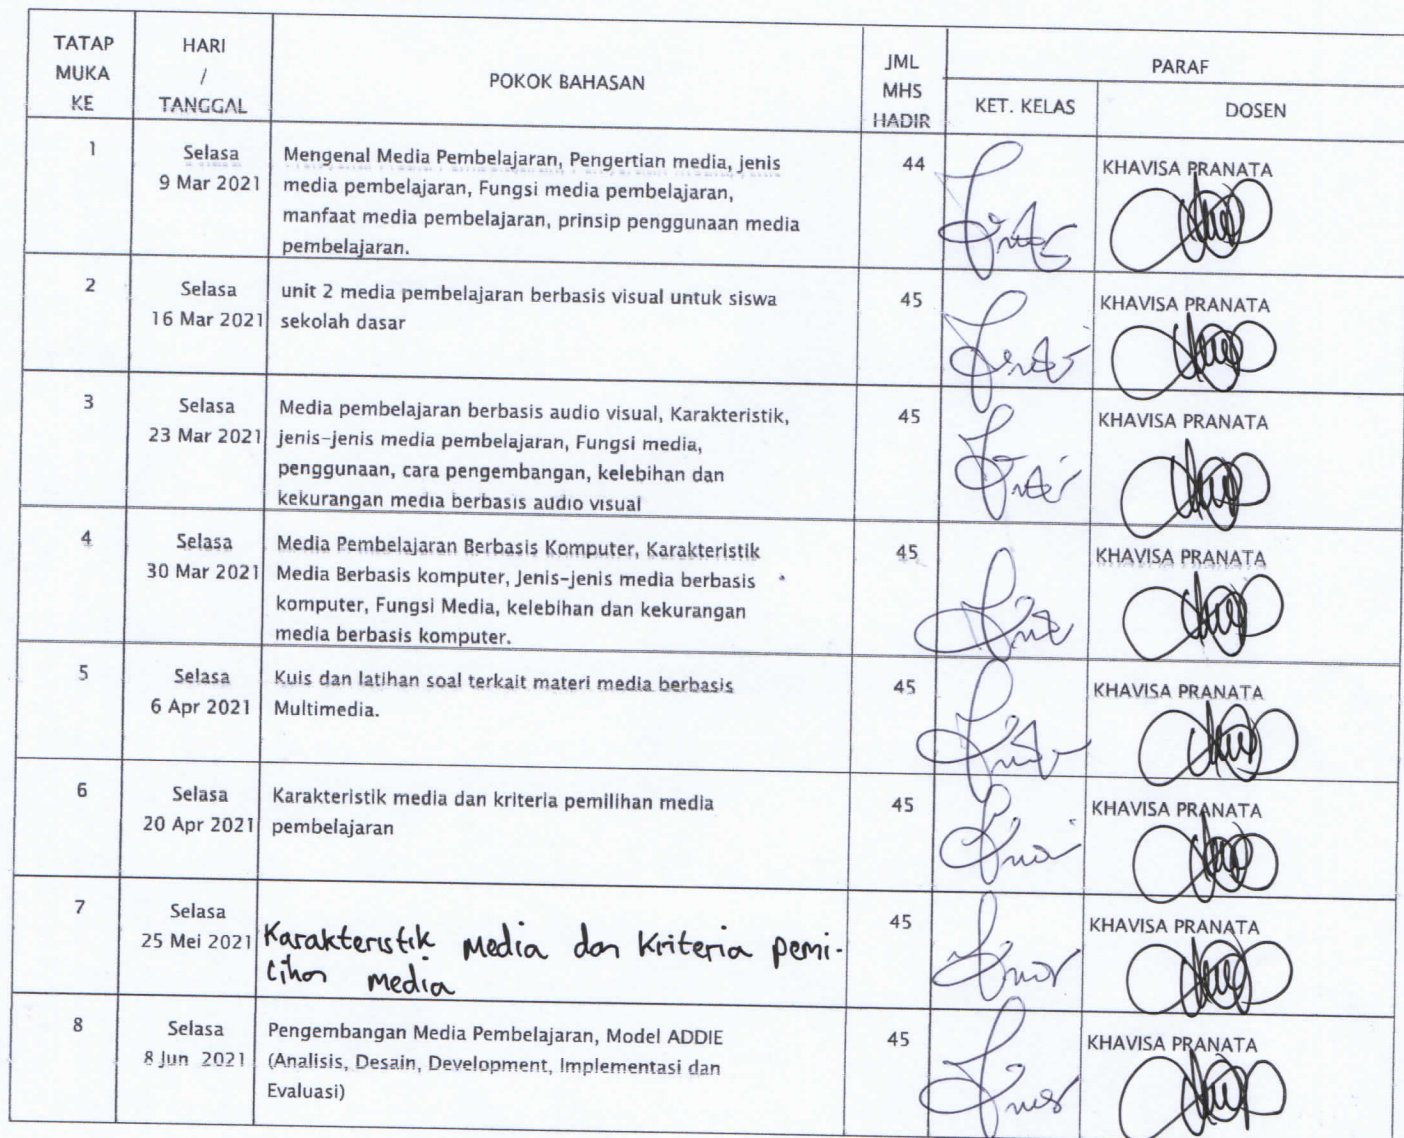 TATAP
MUKA
KE
HARI
/
TANGGAL
POKOK BAHASAN
JML
MHS
HADIR
PARAF
KET. KELAS
DOSEN
1
Selasa
9 Mar 2021
Mengenal Media Pembelajaran, Pengertian media, jenis
media pembelajaran, Fungsi media pembelajaran,
manfaat media pembelajaran, prinsip penggunaan media
pembelajaran.
44
KHAVISA PRANATA
2
Selasa
16 Mar 2021
unit 2 media pembelajaran berbasis visual untuk siswa
sekolah dasar
45
KHAVISA PRANATA
3
Selasa
23 Mar 2021
Media pembelajaran berbasis audio visual, Karakteristik,
jenis-jenis media pembelajaran, Fungsi media,
penggunaan, cara pengembangan, kelebihan dan
kekurangan media berbasis audio visual
45
KHAVISA PRANATA
4
Selasa
30 Mar 2021
Media Pembelajaran Berbasis Komputer, Karakteristik
Media Berbasis komputer, Jenis-jenis media berbasis
komputer, Fungsi Media, kelebihan dan kekurangan
media berbasis komputer.
45
KHAVISA PRANATA
5
Selasa
6 Apr 2021
Kuis dan latihan soal terkait materi media berbasis
Multimedia.
45
KHAVISA PRANATA
6
Selasa
20 Apr 2021
Karakteristik media dan kriteria pemilihan media
pembelajaran
45
KHAVISA PRANATA
7
Selasa
25 Mei 2021
Karakteristik media dan kriteria pemi-
lihan media
45
KHAVISA PRANATA
8
Selasa
8 Jun 2021
Pengembangan Media Pembelajaran, Model ADDIE
(Analisis, Desain, Development, Implementasi dan
Evaluasi)
45
KHAVISA PRANATA